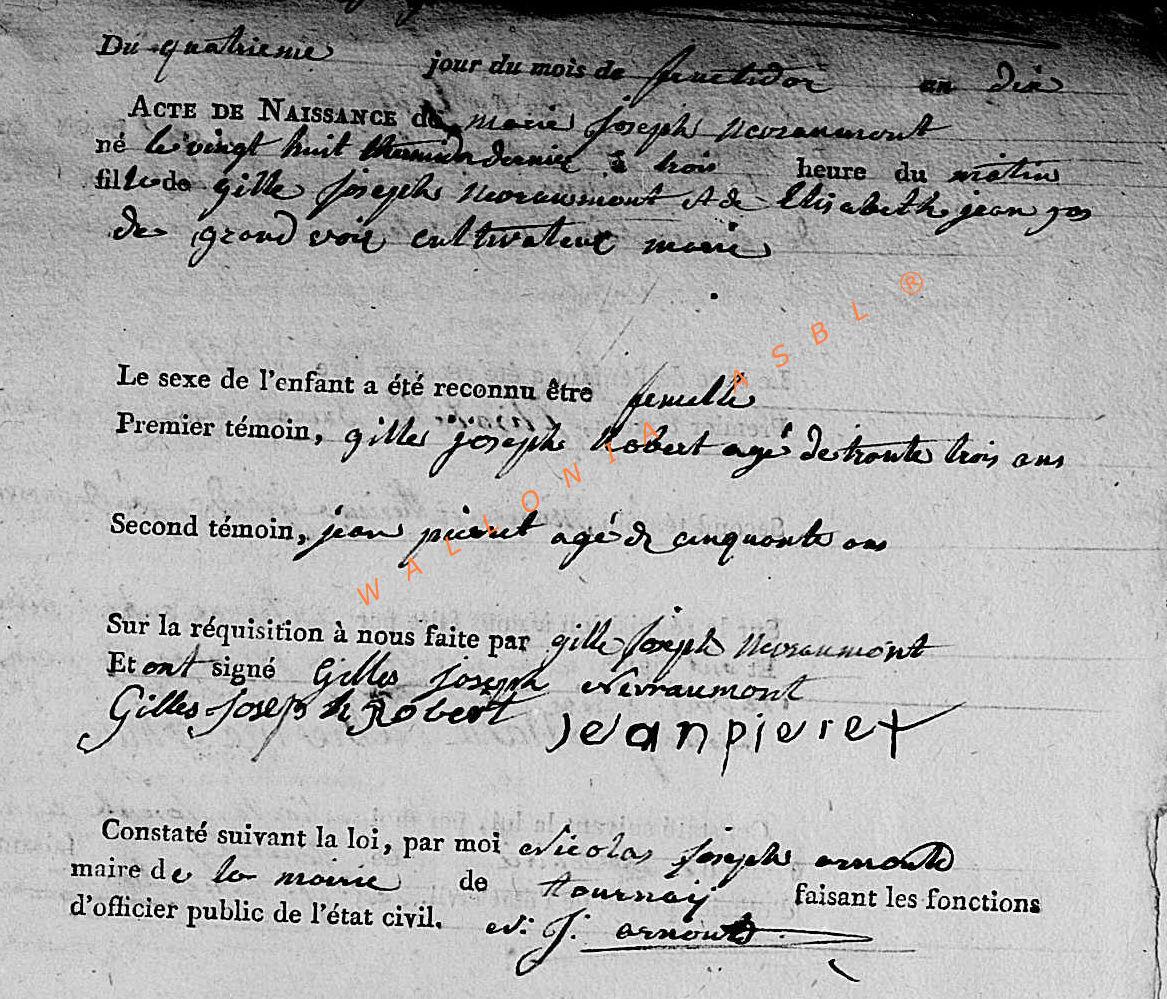 Du quatrieme jour du mois de fructidor an dix
ACTE DE NAISSANCE de marie Joseph nevraumont
né le vingt huit thermidor dernier à trois heure du matin
fille de gille Joseph nevraumont et de Elisabeth jean
de grand voir cultivateur marié
Le sexe de l'enfant a été reconnu être femelle
Premier témoin, gilles joseph Robert agé de trente trois ans
Second témoin, jean pieret agé de cinquante ans
Sur la réquisition à nous faite par gille Joseph nevraumont
Et ont signé Gilles Joseph Nevraumont
Gilles Joseph Robert Jean pieret
Constaté suivant la loi, par moi Nicolas Joseph arnould
maire de la mairie de tournay faisant les fonctions
d'officier public de l'état civil. N: J. arnould
WALLONIA ASBL ®